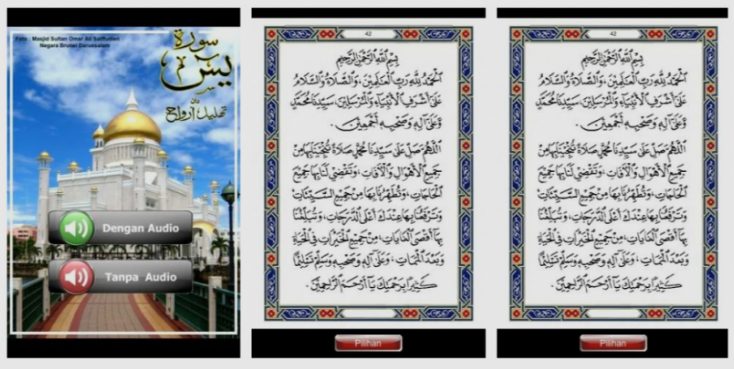 Foto : Masjid Sultan Omar Ali Saifuddien
Negara Brunei Darussalam
سورة
يس
دان
تهليل أرواح
Dengan Audio
Tanpa Audio
42
بِسْمِ اللَّهِ الرَّحْمَٰنِ الرَّحِيمِ
اَلْحَمْدُ لِلَّهِ رَبِّ الْعَالَمِينَ، وَالصَّلَاةُ وَالسَّلَامُ
عَلَى أَشْرَفِ الْأَنْبِيَاءِ وَالْمُرْسَلِينَ، سَيِّدِنَا مُحَمَّدٍ
وَعَلَى آلِهِ وَصَحْبِهِ أَجْمَعِينَ.
اَللَّهُمَّ صَلِّ عَلَى سَيِّدِنَا مُحَمَّدٍ صَلَاةً تُنْجِينَا بِهَا مِنْ
جَمِيعِ الْأَهْوَالِ وَالْآفَاتِ، وَتَقْضِي لَنَا بِهَا جَمِيعَ
الْحَاجَاتِ، وَتُطَهِّرُنَا بِهَا مِنْ جَمِيعِ السَّيِّئَاتِ
وَتَرْفَعُنَا بِهَا عِنْدَكَ أَعْلَى الدَّرَجَاتِ، وَتُبَلِّغُنَا
بِهَا أَقْصَى الْغَايَاتِ، مِنْ جَمِيعِ الْخَيْرَاتِ فِي الْحَيَاةِ
وَبَعْدَ الْمَمَاتِ، وَعَلَى آلِهِ وَصَحْبِهِ وَسَلِّمْ تَسْلِيمًا
كَثِيرًا بِرَحْمَتِكَ يَا أَرْحَمَ الرَّاحِمِينَ.
Pilihan
42
بِسْمِ اللَّهِ الرَّحْمَٰنِ الرَّحِيمِ
اَلْحَمْدُ لِلَّهِ رَبِّ الْعَالَمِينَ، وَالصَّلَاةُ وَالسَّلَامُ
عَلَى أَشْرَفِ الْأَنْبِيَاءِ وَالْمُرْسَلِينَ، سَيِّدِنَا مُحَمَّدٍ
وَعَلَى آلِهِ وَصَحْبِهِ أَجْمَعِينَ.
اَللَّهُمَّ صَلِّ عَلَى سَيِّدِنَا مُحَمَّدٍ صَلَاةً تُنْجِينَا بِهَا مِنْ
جَمِيعِ الْأَهْوَالِ وَالْآفَاتِ، وَتَقْضِي لَنَا بِهَا جَمِيعَ
الْحَاجَاتِ، وَتُطَهِّرُنَا بِهَا مِنْ جَمِيعِ السَّيِّئَاتِ
وَتَرْفَعُنَا بِهَا عِنْدَكَ أَعْلَى الدَّرَجَاتِ، وَتُبَلِّغُنَا
بِهَا أَقْصَى الْغَايَاتِ، مِنْ جَمِيعِ الْخَيْرَاتِ فِي الْحَيَاةِ
وَبَعْدَ الْمَمَاتِ، وَعَلَى آلِهِ وَصَحْبِهِ وَسَلِّمْ تَسْلِيمًا
كَثِيرًا بِرَحْمَتِكَ يَا أَرْحَمَ الرَّاحِمِينَ.
Pilihan